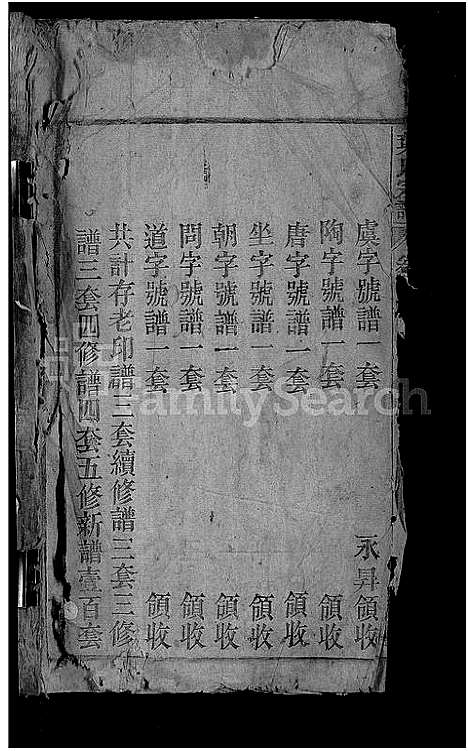 虞字號譜一套 永昇領收
陶字號譜一套 領收
唐字號譜一套 領收
坐字號譜一套 領收
朝字號譜一套 領收
問字號譜一套 領收
道字號譜一套 領收
共計存老印譜三套續修譜三套三修
譜三套四修譜四套五修新譜壹百套
FamilySearch